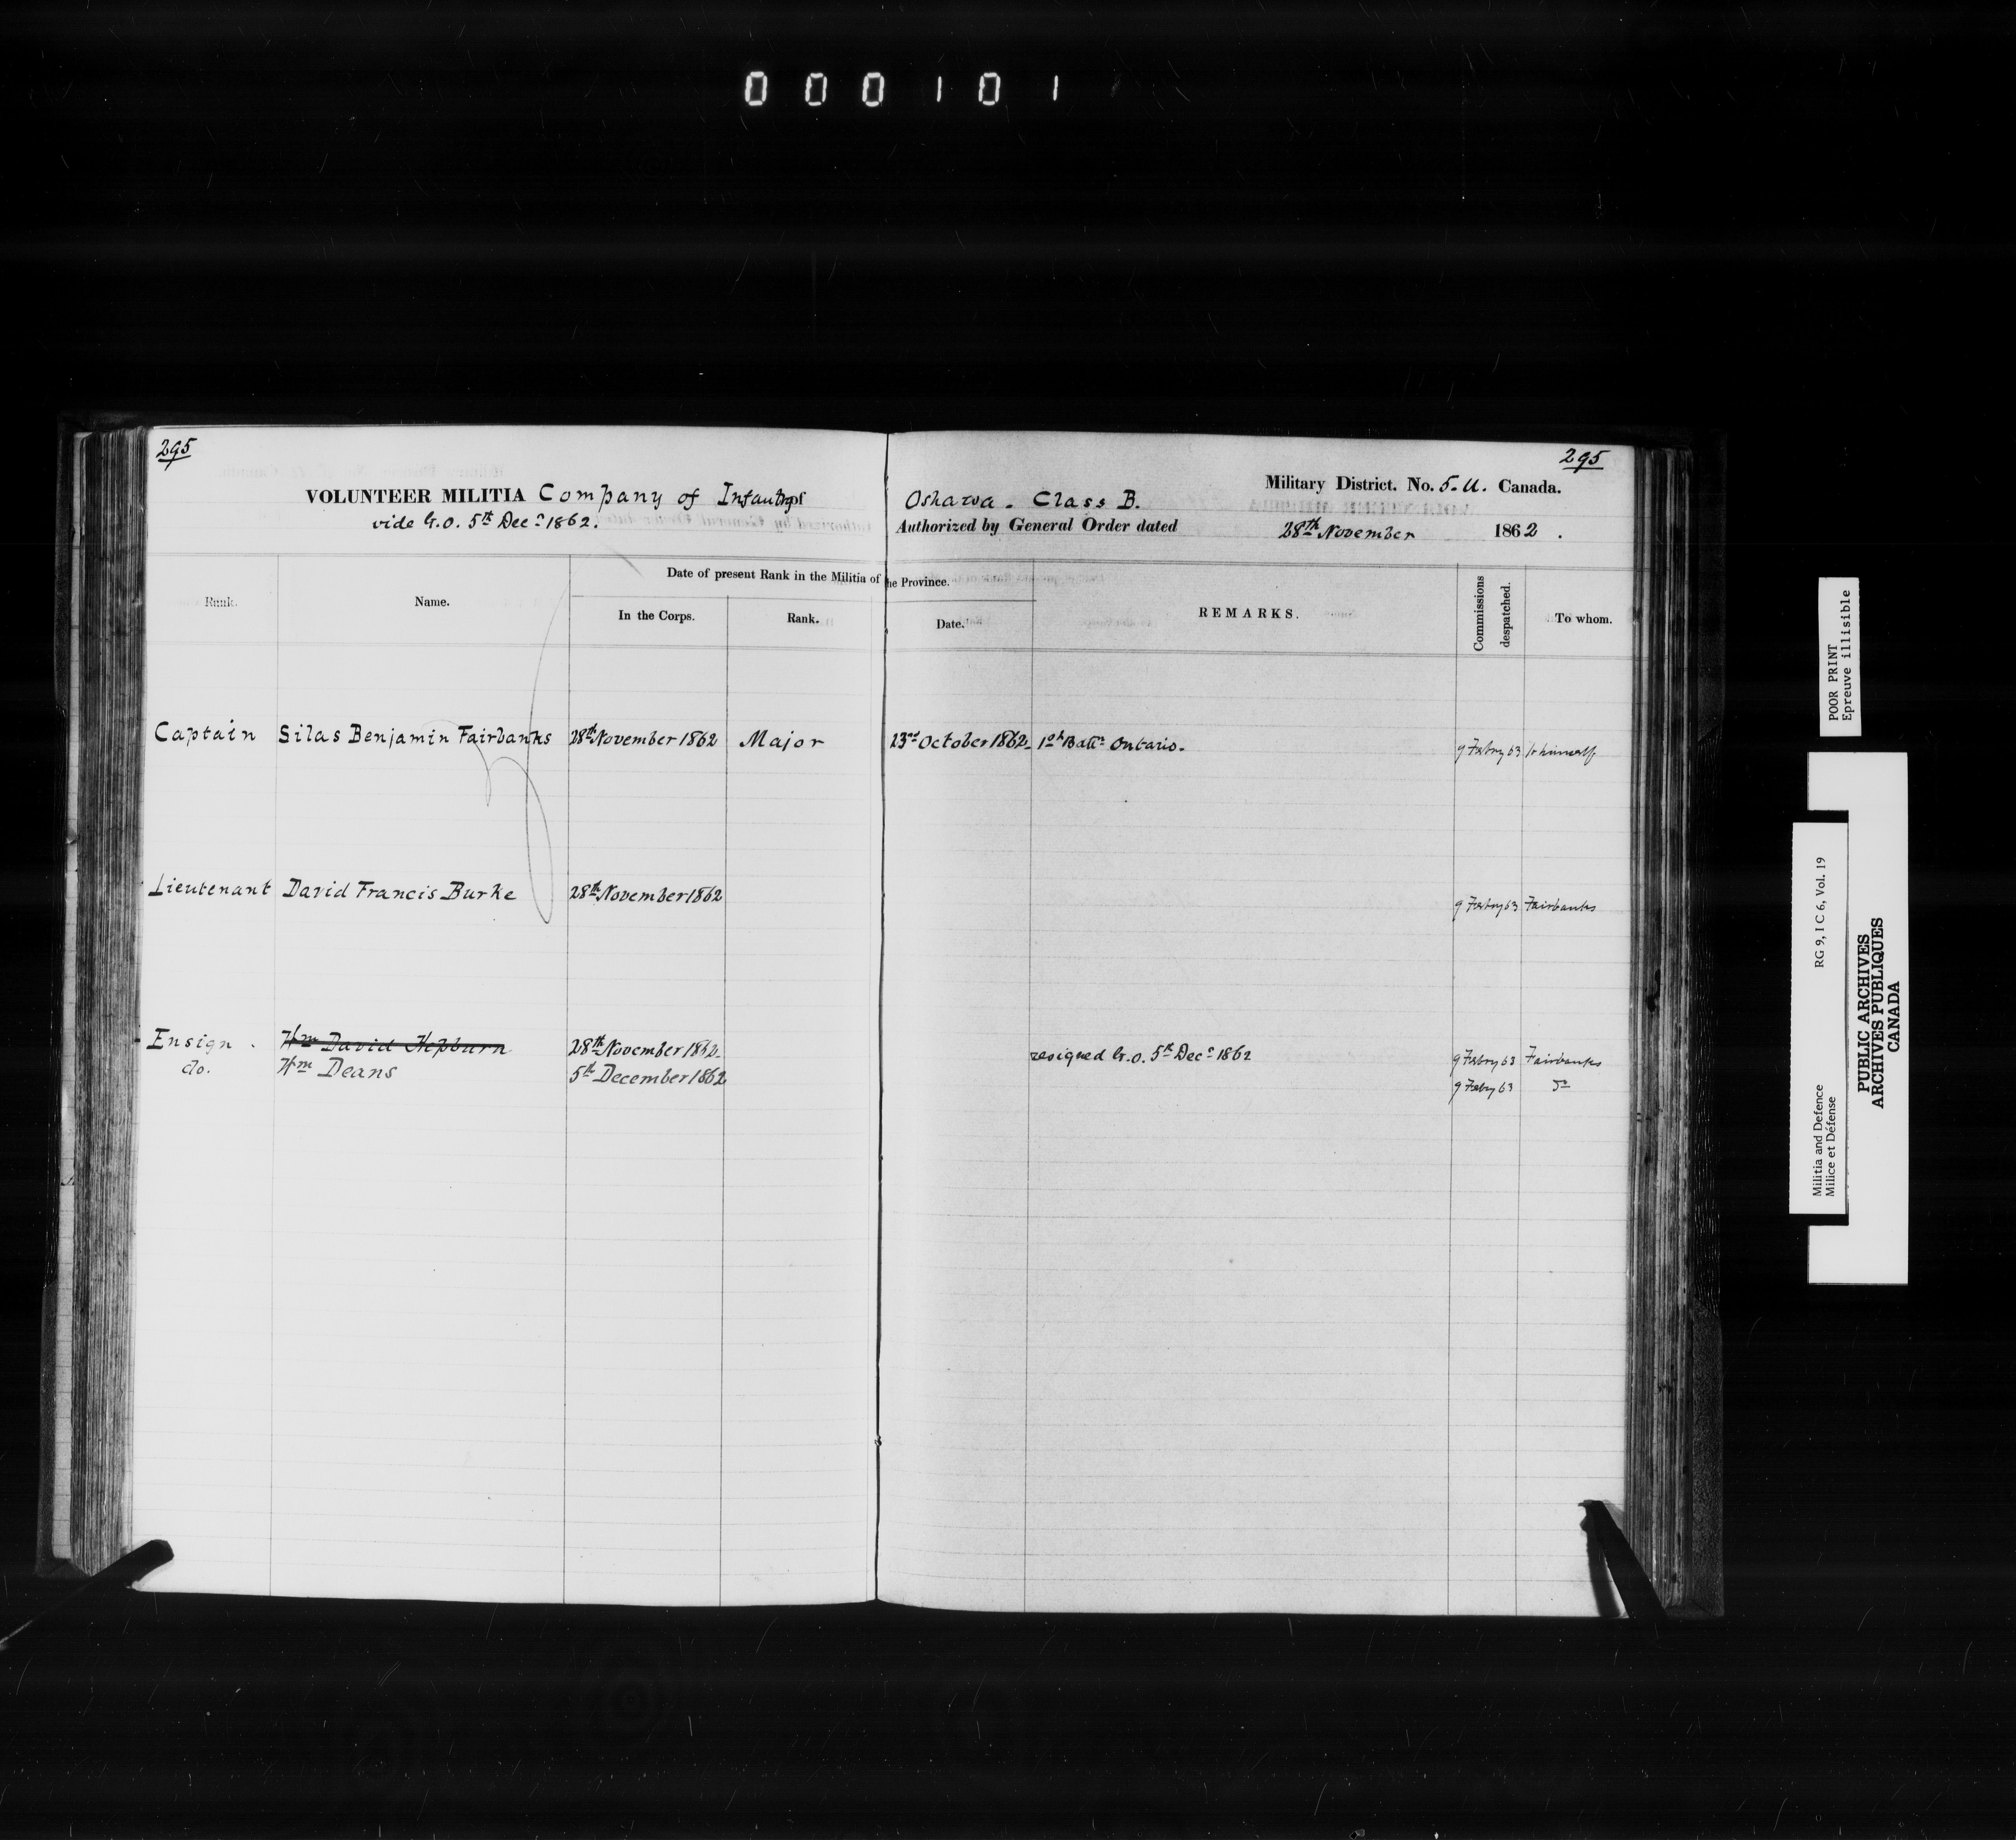 000101
295
295
VOLUNTEER MILITIA Company of Infantry of Oshawa. Class B. Military District. No. 5. U. Canada.
vide G.O. 5th Decr 1862. Authorized by General Order dated 28th November 1862.
Rank. Name. Date of present Rank in the Militia of the Province. REMARKS. Commissions despatched. To whom.
In the Corps. Rank. Date.
Captain Silas Benjamin Fairbanks 28th November 1862 Major 23rd October 1862. 1st Battn Ontario. 9 Febry 63 to himself
Lieutenant David Francis Burke 28th November 1862 9 Febry 63 Fairbanks
Ensign. Wm David Hepburn 28th November 1862. resigned G.O. 5th Decr 1862 9 Febry 63 Fairbanks
do. Wm Deans 5th December 1862 9 Febry 63 Do
POOR PRINT
Epreuve illisible
Militia and Defence RG 9, I C 6, Vol. 19
Milice et Défense
PUBLIC ARCHIVES
ARCHIVES PUBLIQUES
CANADA